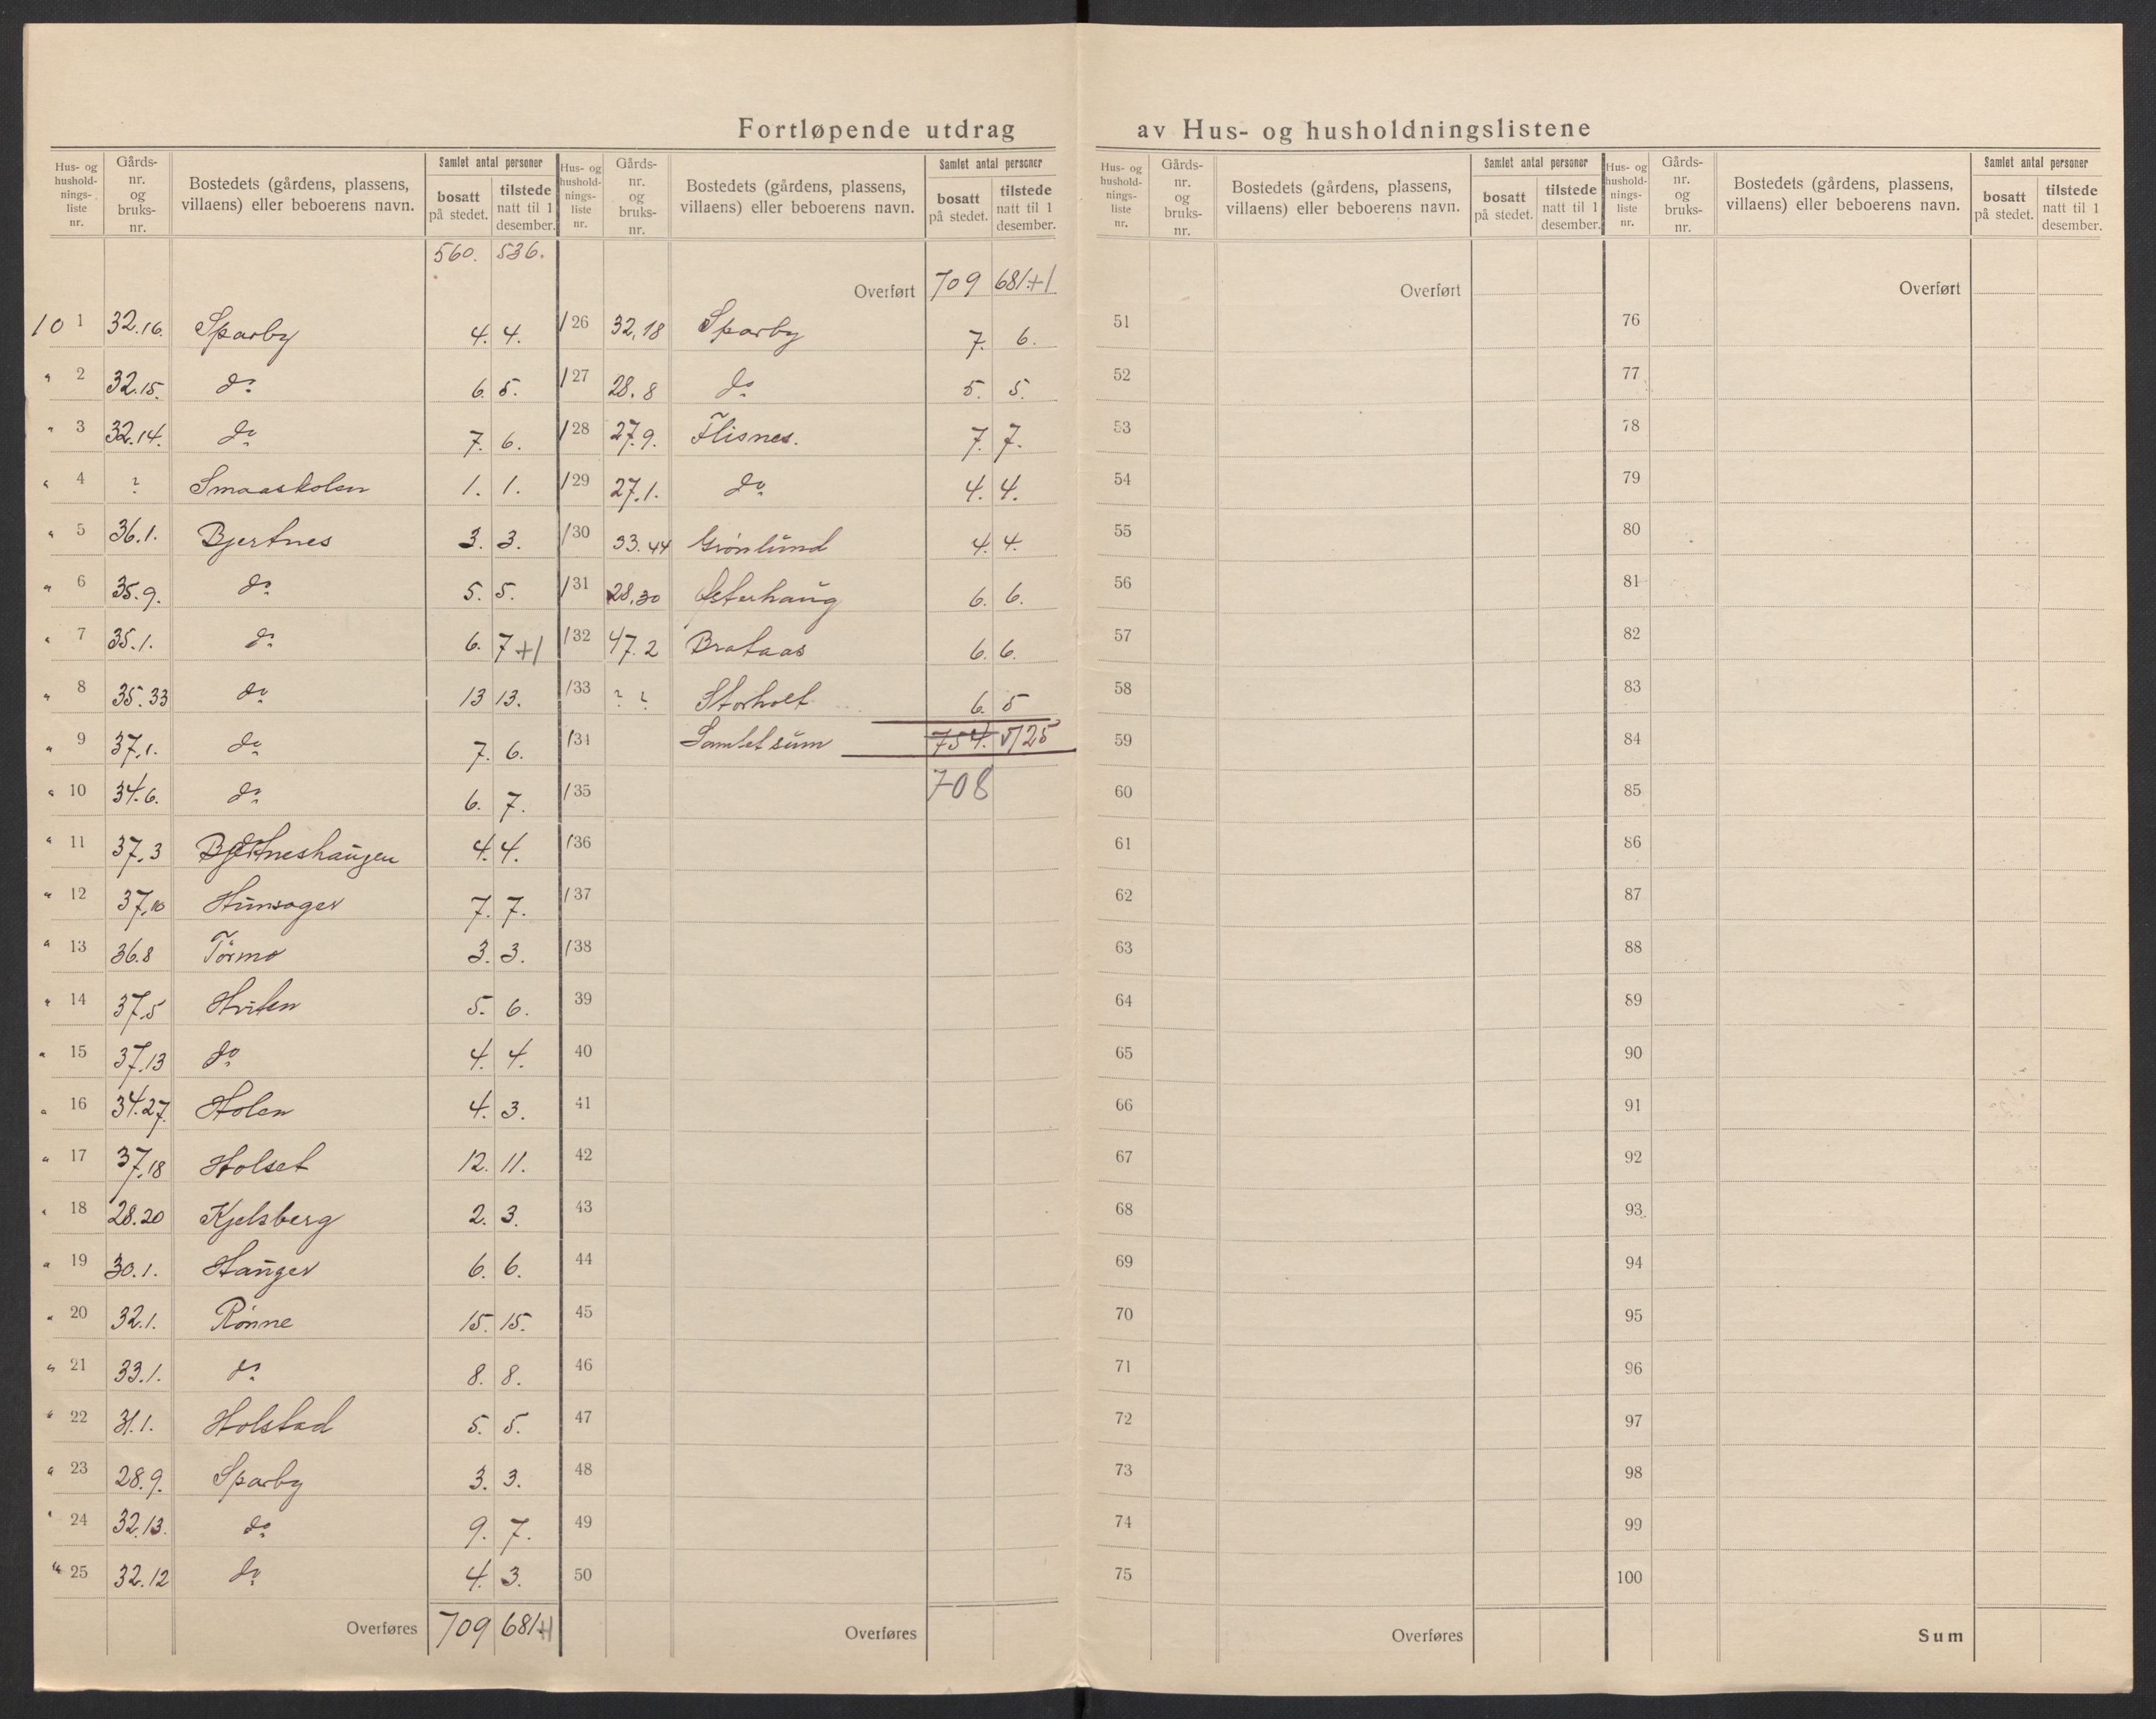 Fortløpende utdrag av Hus- og husholdningslistene
Hus- og hushold-nings-liste nr. Gårds-nr. og bruks-nr. Bostedets (gårdens, plassens, villaens) eller beboerens navn. Samlet antal personer bosatt på stedet. tilstede natt til 1 desember.
560. 536.
10 1 32.16. Sparby 4. 4.
" 2 32.15. do 6. 5.
" 3 32.14. do 7. 6.
" 4 ? Smaaskolen 1. 1.
" 5 36.1. Bjertnes 3. 3.
" 6 35.9. do 5. 5.
" 7 35.1. do 6. 7+1
" 8 35.33 do 13 13.
" 9 37.1. do 7. 6.
" 10 34.6. do 6. 7.
" 11 37.3 Bjertneshaugen 4. 4.
" 12 37.10 Hunsager 7. 7.
" 13 36.8 Tørmo 3. 3.
" 14 37.5 Hvilen 5. 6.
" 15 37.13 do 4. 4.
" 16 34.27. Holen 4. 3.
" 17 37.18 Holset 12. 11.
" 18 28.20 Kjelsberg 2. 3.
" 19 30.1. Hauger 6. 6.
" 20 32.1. Rønne 15. 15.
" 21 33.1. do 8. 8.
" 22 31.1. Holstad 5. 5.
" 23 28.9. Sparby 3. 3.
" 24 32.13. do 9. 7.
" 25 32.12 do 4. 3.
Overføres 709 681+1
Hus- og hushold-nings-liste nr. Gårds-nr. og bruks-nr. Bostedets (gårdens, plassens, villaens) eller beboerens navn. Samlet antal personer bosatt på stedet. tilstede natt til 1 desember.
Overført 709 681.+1
/26 32.18 Sparby 7. 6.
/27 28.8 do 5. 5.
/28 27.9. Flisnes. 7. 7.
/29 27.1. do 4. 4.
/30 33.44 Grønlund 4. 4.
/31 28.30 Østerhaug 6. 6.
/32 47.2 Brataas 6. 6.
/33 ? ? Storholt 6. 5
/34 Samlet sum 754. 725
/35 708
/36
/37
/38
39
40
41
42
43
44
45
46
47
48
49
50
Overføres
Hus- og hushold-nings-liste nr. Gårds-nr. og bruks-nr. Bostedets (gårdens, plassens, villaens) eller beboerens navn. Samlet antal personer bosatt på stedet. tilstede natt til 1 desember.
Overført
51
52
53
54
55
56
57
58
59
60
61
62
63
64
65
66
67
68
69
70
71
72
73
74
75
Overføres
Hus- og hushold-nings-liste nr. Gårds-nr. og bruks-nr. Bostedets (gårdens, plassens, villaens) eller beboerens navn. Samlet antal personer bosatt på stedet. tilstede natt til 1 desember.
Overført
76
77
78
79
80
81
82
83
84
85
86
87
88
89
90
91
92
93
94
95
96
97
98
99
100
Sum